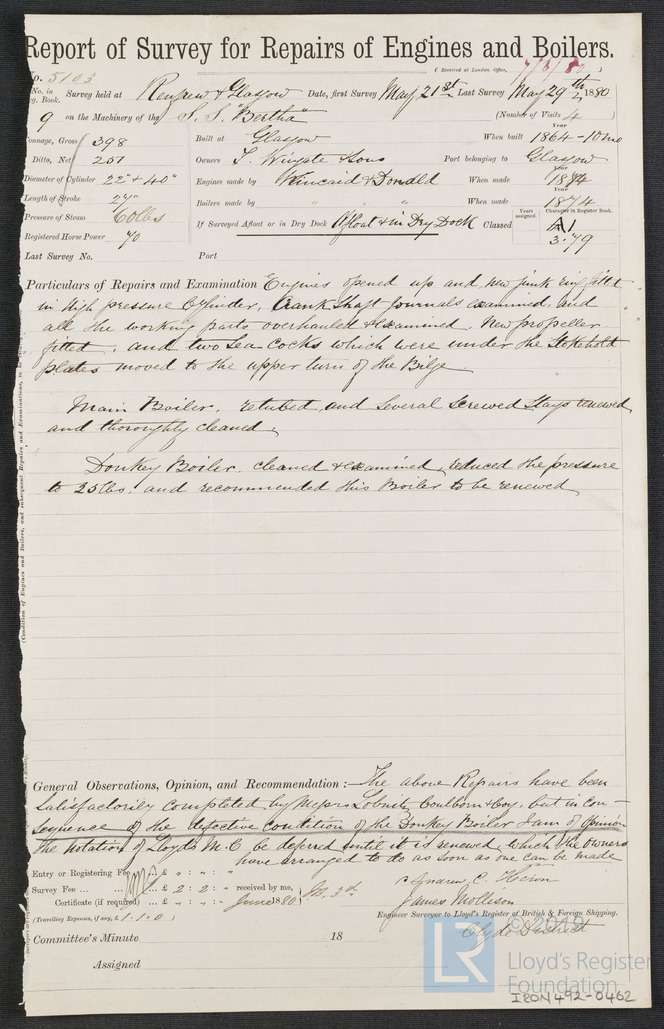 Report of Survey for Repairs of Engines and Boilers.
(Received at London Office, 7/6/80
No. 5103
No. in Reg. Book. Survey held at Renfrew & Glasgow Date, first Survey May 21st Last Survey May 29th 1880
9 on the Machinery of the S.S. "Bertha" (Number of Visits 4
Tonnage, Gross 398 Built at Glasgow When built Year 1864 - 10mo
Ditto, Net 251 Owners J. Wingate & Sons Port belonging to Glasgow
Diameter of Cylinder 22" & 40" Engines made by Kincaid & Donald When made Year 1874
Length of Stroke 27" Boilers made by " " " When made Year 1874
Pressure of Steam 60lbs If Surveyed Afloat or in Dry Dock Afloat & in Dry Dock Classed Years assigned. Character in Register Book. A1
Registered Horse Power 70 3.79
Last Survey No. Port
Particulars of Repairs and Examination Engines opened up and new junk ring fitted
in High pressure Cylinder, Crank Shaft Journals examined and
all the working parts overhauled & examined. New propeller
fitted, and two Sea Cocks which were under the Stokehold
plates moved to the upper turn of the Bilge
Main Boiler, retubed and several Screwed Stays renewed
and thoroughly cleaned,
Donkey Boiler, cleaned & examined, reduced the pressure
to 25lbs. and recommended this Boiler to be renewed
(Condition of Engines and Boilers, and subsequent Repairs and Examinations, to be
General Observations, Opinion, and Recommendation :— The above Repairs have been
Satisfactorily completed by Messrs Lobnitz Coulborn & Coy, but in con-
sequence of the defective condition of the Donkey Boiler I am of opinion
the notation of Lloyd's M.C be deferred until it is renewed, which the owners
have arranged to do as soon as one can be made
Entry or Registering Fee £ " : " : "
Survey Fee ... ... £ 2 : 2 : " received by me,
Certificate (if required) ... £ " : " : " June 1880
(Travelling Expenses, if any, £ 1 : 1 : 0)
James Mollison
Engineer Surveyor to Lloyd's Register of British & Foreign Shipping.
Clyde District
Committee's Minute 18
Assigned
© 2019
LR
Lloyd's Register
Foundation
IRON492-0462